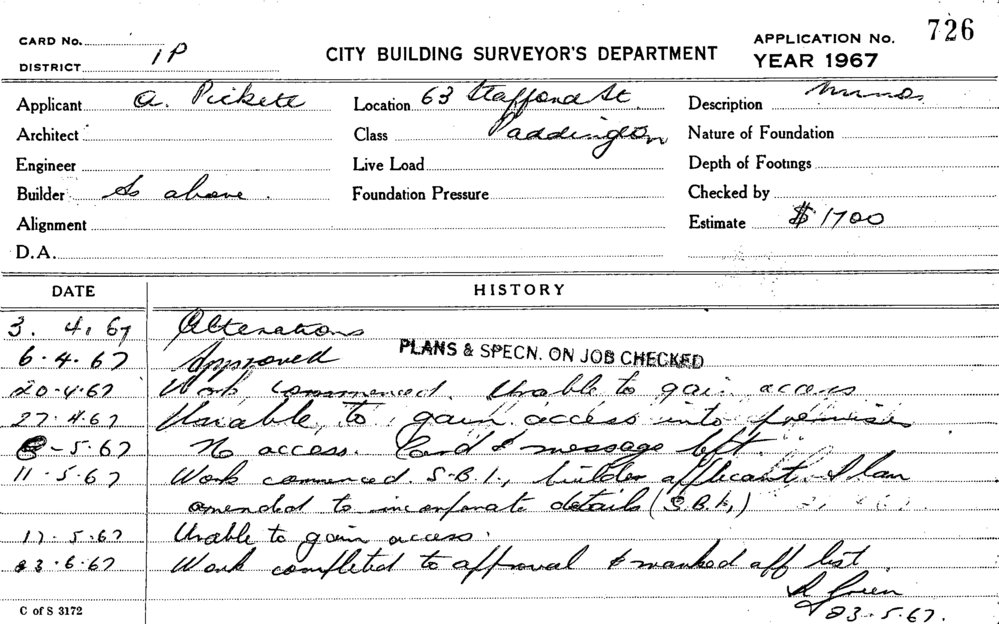 CARD No.
726
DISTRICT 1P
CITY BUILDING SURVEYOR'S DEPARTMENT
APPLICATION No.
YEAR 1967
Applicant A. Pickett
Location 63 Stafford St.
Description
Architect
Class Paddington
Nature of Foundation
Engineer
Live Load
Depth of Footings
Builder As above.
Foundation Pressure
Checked by
Alignment
Estimate $1700
D.A.
DATE HISTORY
3. 4. 67 Alterations
6.4.67 Approved PLANS & SPECN. ON JOB CHECKED
20.4.67 Work commenced. Unable to gain access
27.4.67 Unable to gain access into premises
8-5.67 No access. Card & message left.
11.5.67 Work commenced. S.B.I., builder applicant. Plan
amended to incorporate details (S.B.I.)
17.5.67 Unable to gain access.
23.6.67 Work completed to approval & marked off list.
Green
23.5.67.
C of S 3172